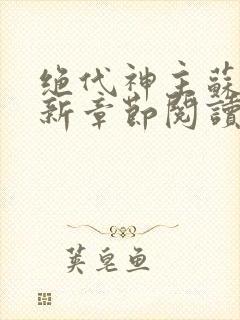 绝代神主蘇
新章節閱讀
荚皂鱼